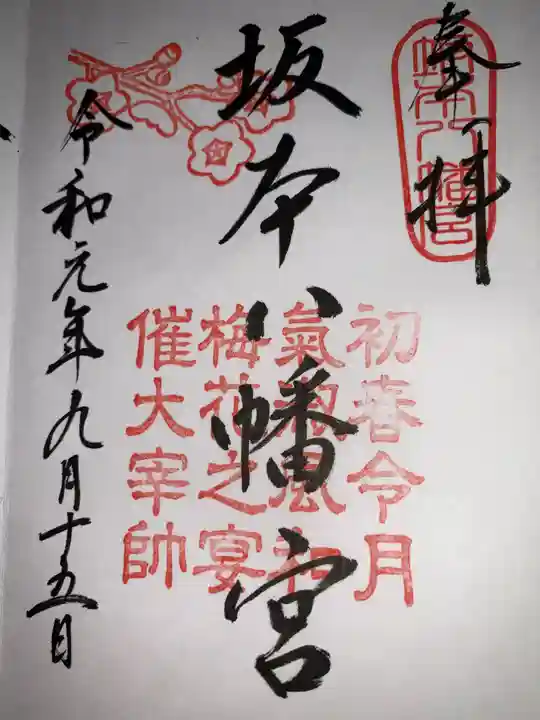 奉拝
坂本八幡宮
坂本八幡宮
初春令月
氣淑風和
梅花之宴
催大宰帥
令和元年九月十五日